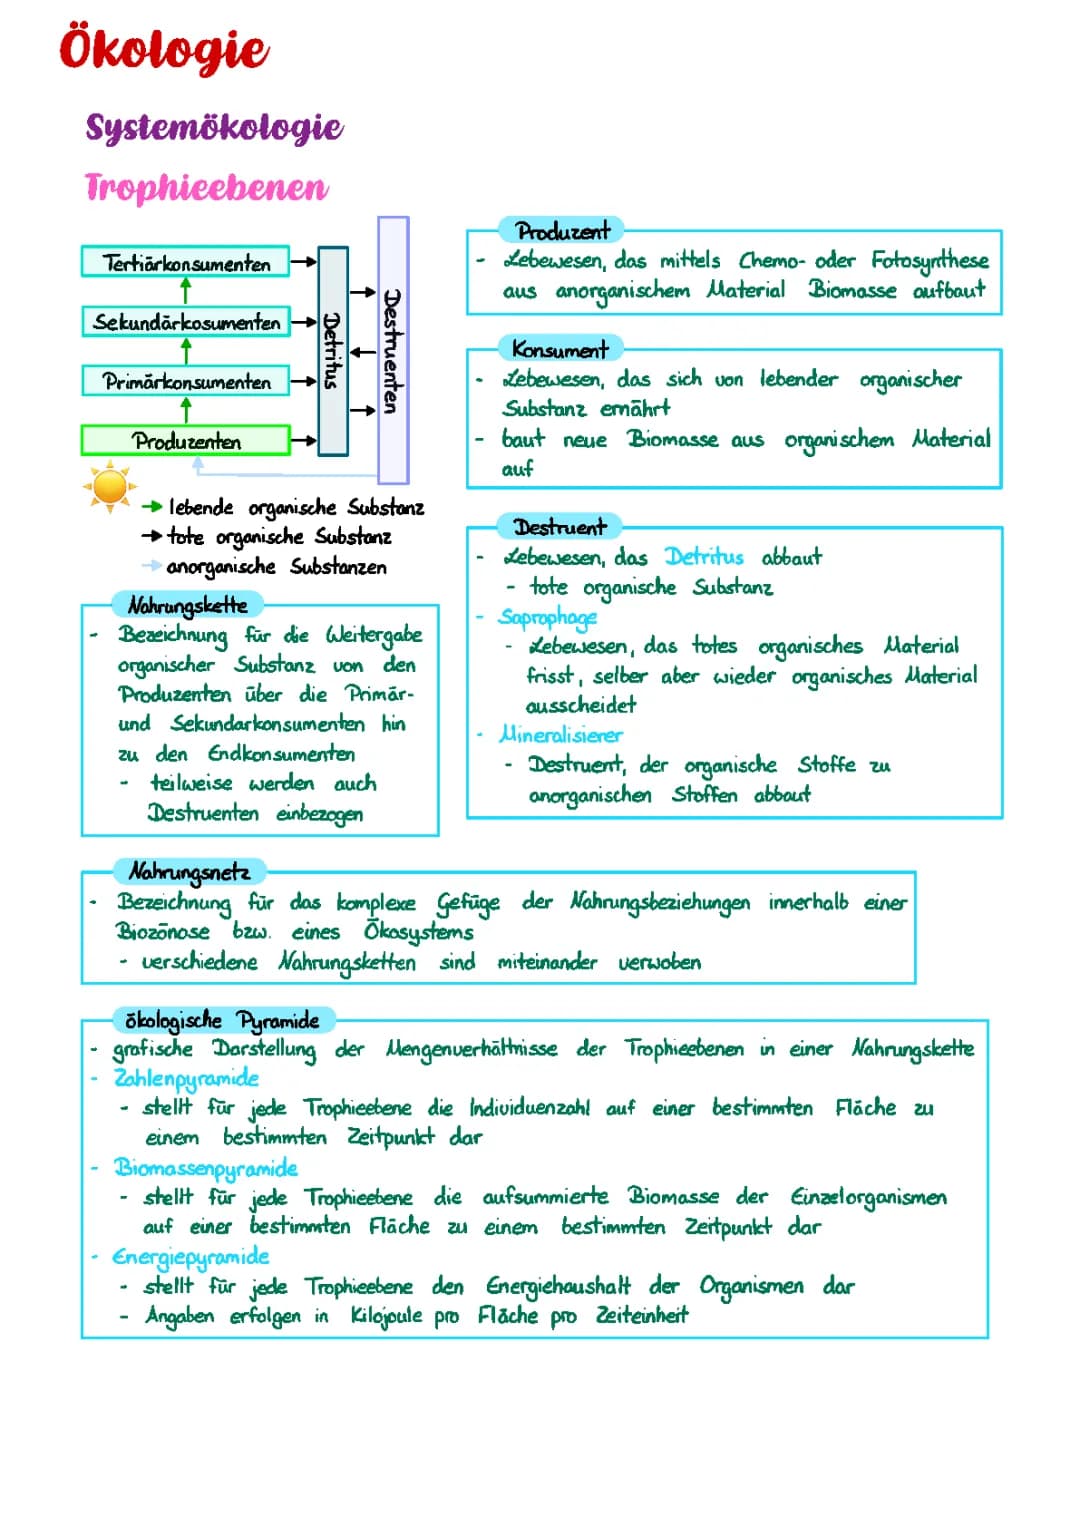 Ökologie
Systemökologie
Trophieebenen
Tertiärkonsumenten
Sekundärkosumenten
Primärkonsumenten
Produzenten
Detritus
Destruenten
→ lebende organische Substanz
→ tote organische Substanz
→ anorganische Substanzen
Nahrungskette
- Bezeichnung für die Weitergabe
organischer Substanz von den
Produzenten über die Primär-
und Sekundarkonsumenten hin
zu den Endkonsumenten
- teilweise werden auch
Destruenten einbezogen
Produzent
- Lebewesen, das mittels Chemo- oder Fotosynthese
aus anorganischem Material Biomasse aufbaut
Konsument
- Lebewesen, das sich von lebender organischer
Substanz ernährt
- baut neue Biomasse aus organischem Material
auf
Destruent
- Lebewesen, das Detritus abbaut
- tote organische Substanz
- Saprophage
- Lebewesen, das totes organisches Material
frisst, selber aber wieder organisches Material
ausscheidet
- Mineralisierer
- Destruent, der organische Stoffe zu
anorganischen Stoffen abbaut
Nahrungsnetz
- Bezeichnung für das komplexe Gefüge der Nahrungsbeziehungen innerhalb einer
Biozönose bzw. eines Ökosystems
- verschiedene Nahrungsketten sind miteinander verwoben
ökologische Pyramide
- grafische Darstellung der Mengenverhältnisse der Trophieebenen in einer Nahrungskette
- Zahlenpyramide
- stellt für jede Trophieebene die Individuenzahl auf einer bestimmten Fläche zu
einem bestimmten Zeitpunkt dar
- Biomassenpyramide
- stellt für jede Trophieebene die aufsummierte Biomasse der Einzelorganismen
auf einer bestimmten Fläche zu einem bestimmten Zeitpunkt dar
- Energiepyramide
- stellt für jede Trophieebene den Energiehaushalt der Organismen dar
- Angaben erfolgen in Kilojoule pro Fläche pro Zeiteinheit